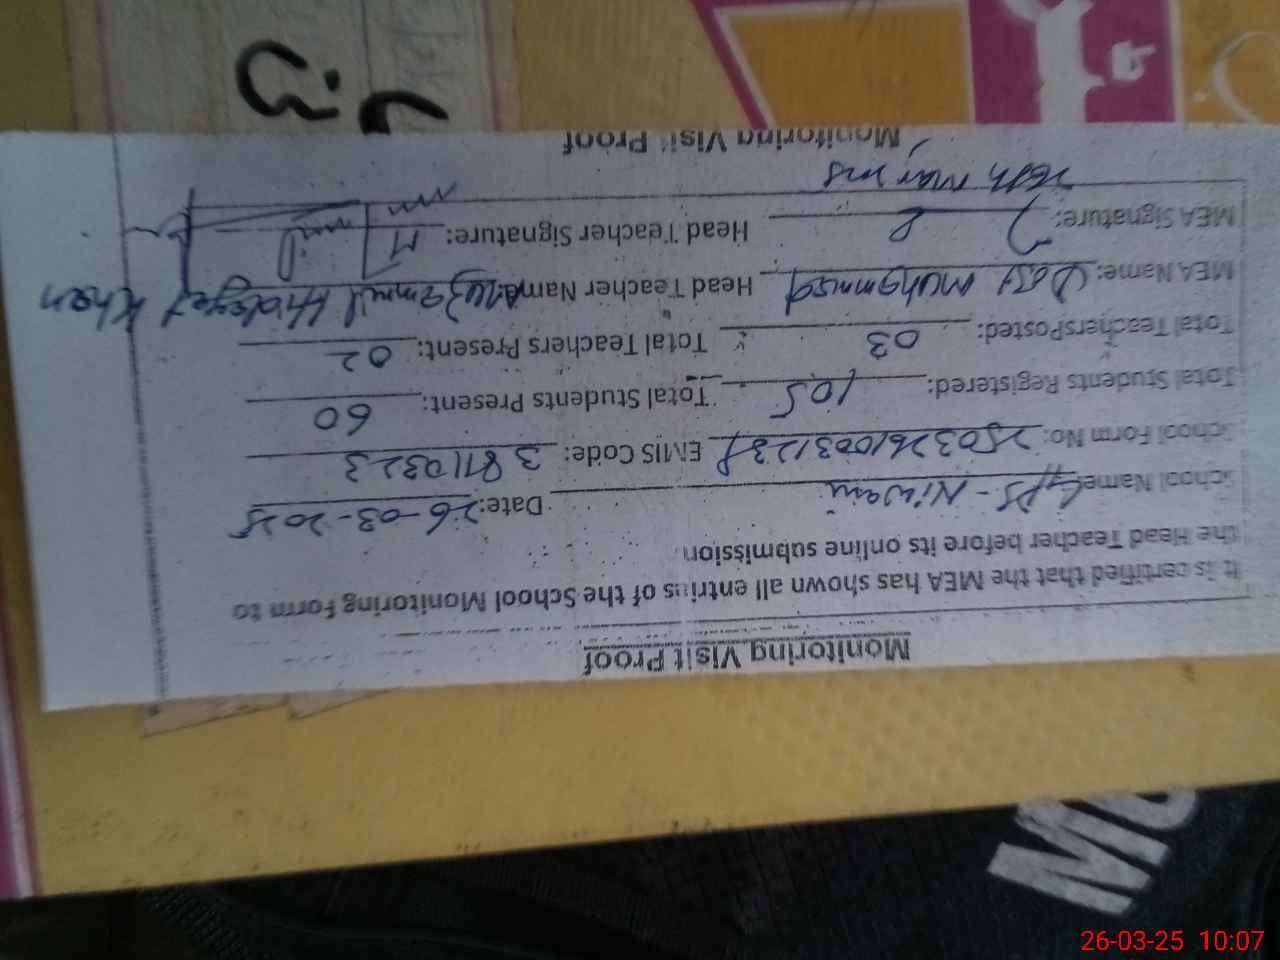 Monitoring Visit Proof
It is certified that the MEA has shown all entries of the School Monitoring Form to
the Head Teacher before its online submission.
School Name: GPS - Niwani Date: 26-03-2025
School Form No: EMIS Code: 38110323
Total Students Registered: 105 Total Students Present: 60
Total TeachersPosted: 03 Total Teachers Present: 02
MEA Name: Dost Muhammad Head Teacher Name: Muzammil Hidayat Khan
MEA Signature: Head Teacher Signature:
Monitoring Visit Proof
26-03-25 10:07